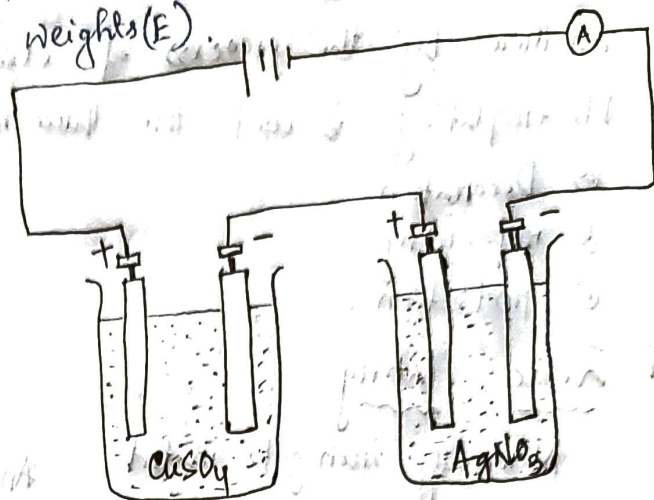 weights(E).
A
+ - + -
CuSO4 AgNO3